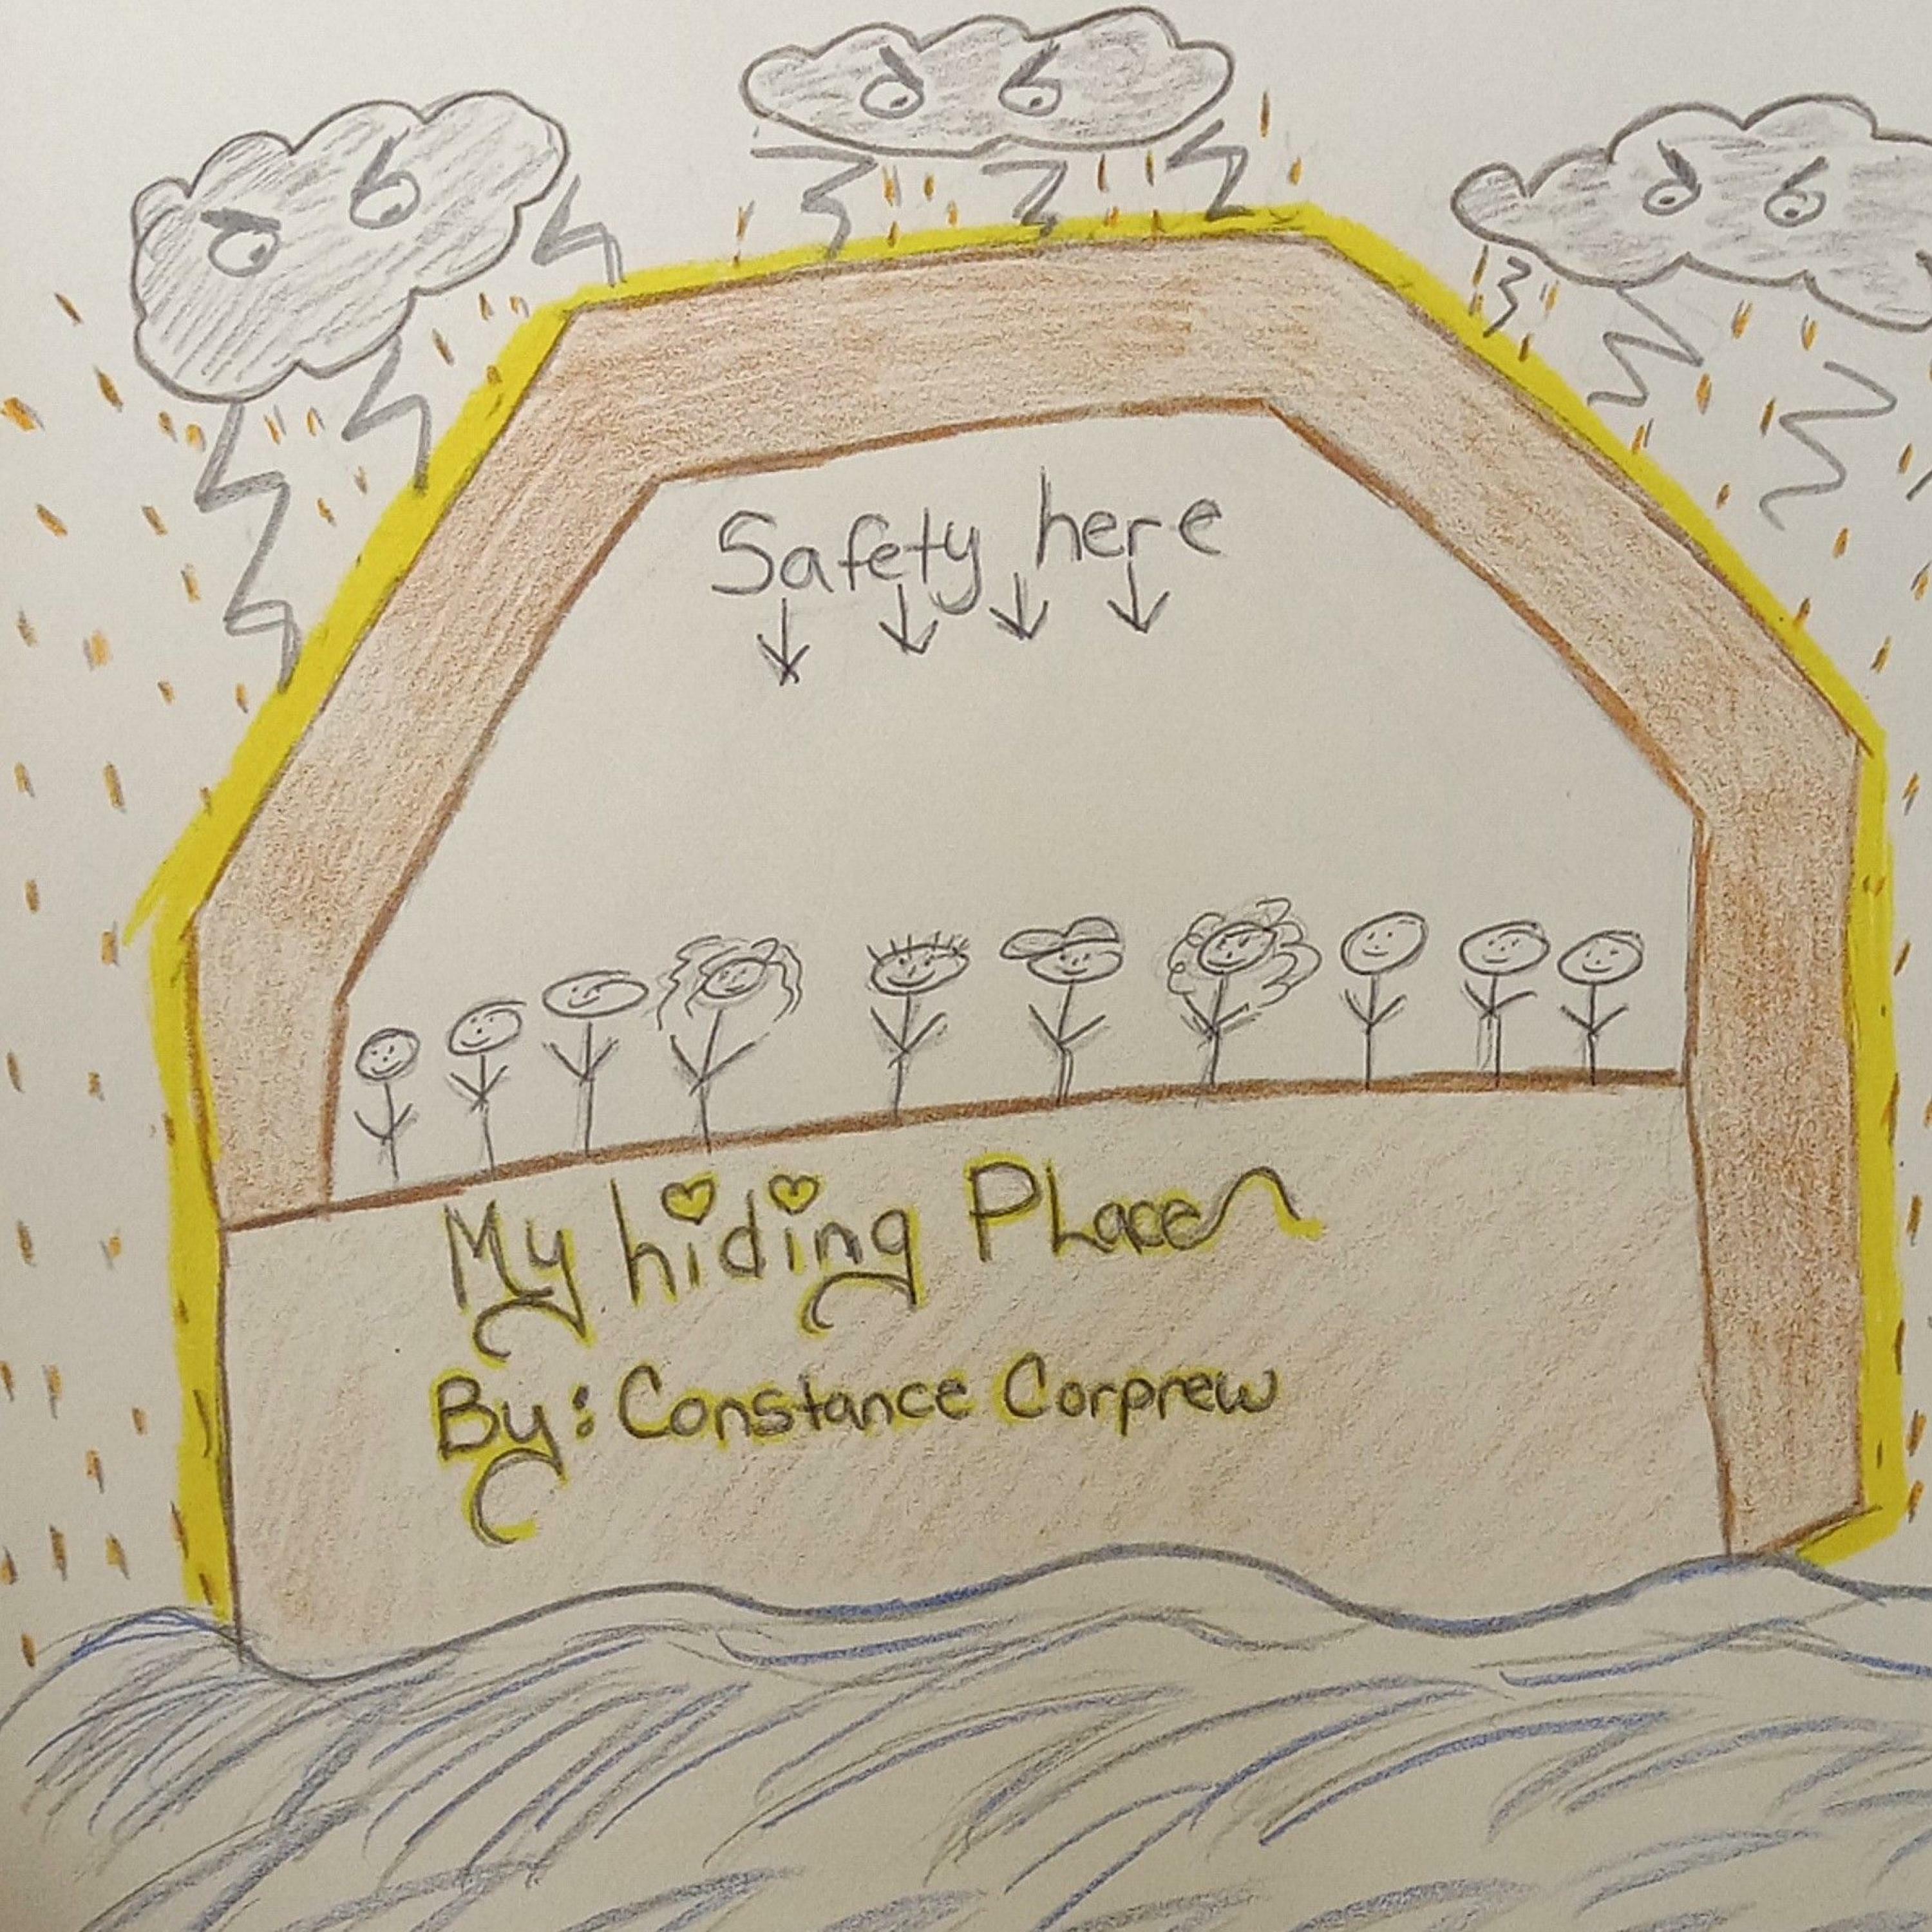 Safety here
My hiding Place
By: Constance Corprew